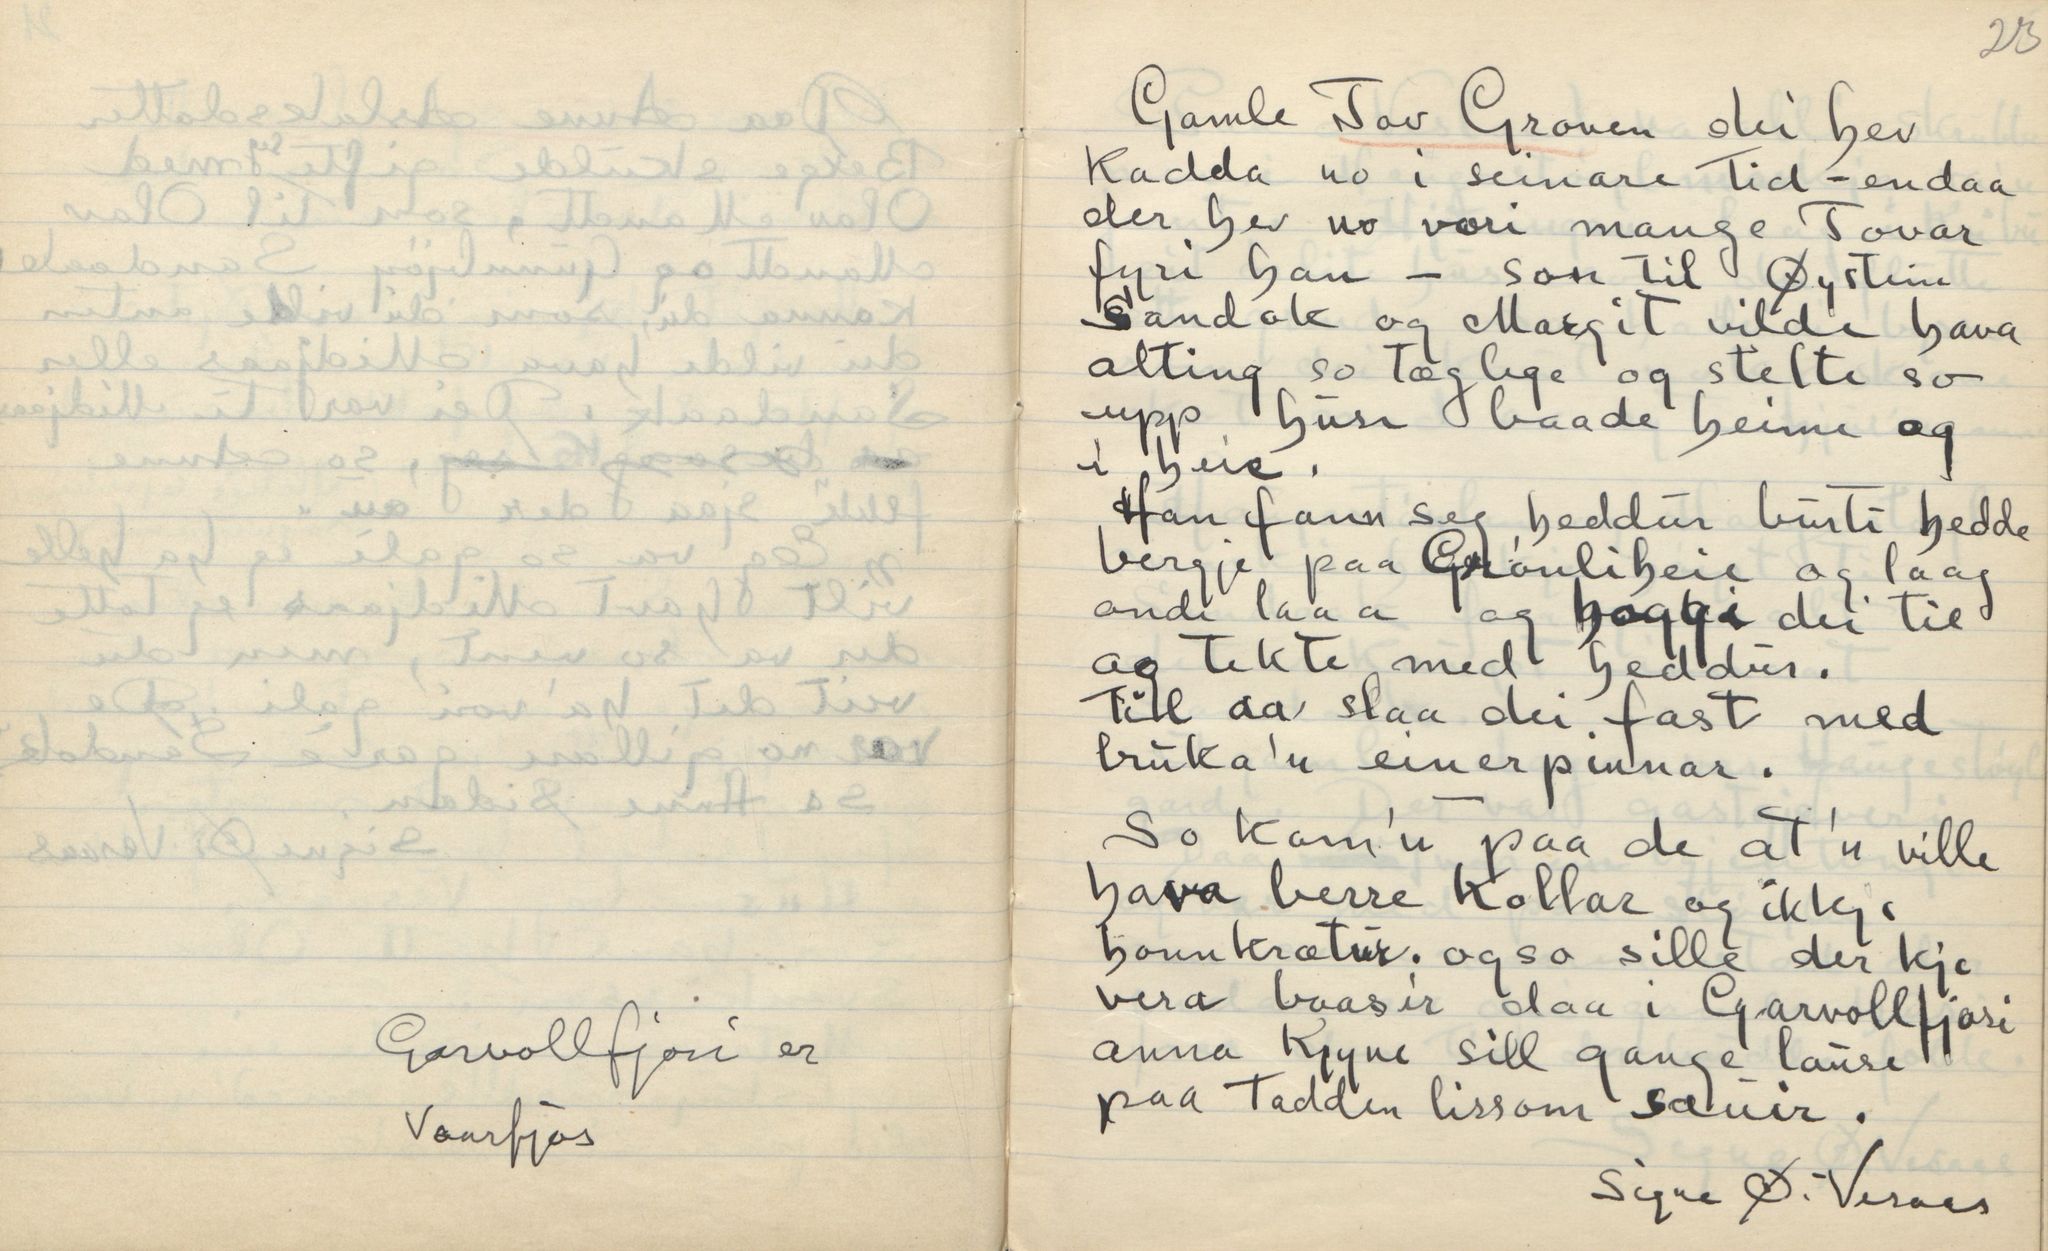 Garvollfjosi er
Vaarfjos
23
Gamle Tov Groven dei hev
kadda no i seinare tid - endaa
der hev no vori mange Tovar
fyri han - son til Øystein
Sandok og Margit vilde hava
alting so tæglege og stelte so
upp husi baade heime og
i heie.
Han fann seg heddur burti hedde
bergje paa Grønliheie og laag
onde laaa og hoggi dei til
og tekte med heddur.
Till aa slaa dei fast med
bruka'n einerpinnar.
So kom'n paa de at'n ville
hava berre kollar og ikkje
honnkrætur. ogso sille der kje
vera baasir daa i Garvollfjosi
anna kjyne sill gange lause
paa tadden lissom sauir.
Signe Ø. Versaas